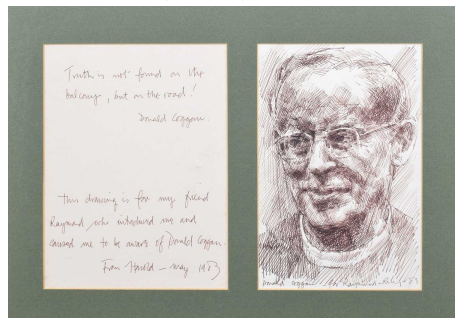 Truth is not found on the
balcony, but on the road!
Donald Coggan.
This drawing is for my friend
Raymond, who introduced me and
caused me to be aware of Donald Coggan.
From Harold – May 1983
Donald Coggan – for Raymond